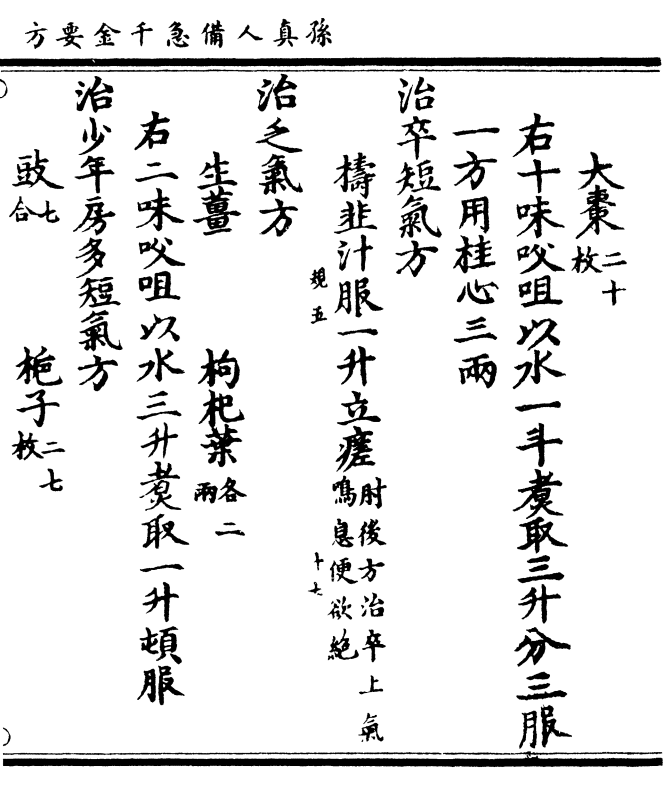 孫真人備急千金要方
大棗二十枚
右十味㕮咀以水一斗煑取三升分三服
一方用桂心三兩
治卒短氣方
擣韭汁服一升立瘥肘後方治卒上氣鳴息便欲絶
規五
十七
治乏氣方
生薑 枸杞葉各二兩
右二味㕮咀以水三升煑取一升頓服
治少年房多短氣方
豉七合 梔子二七枚